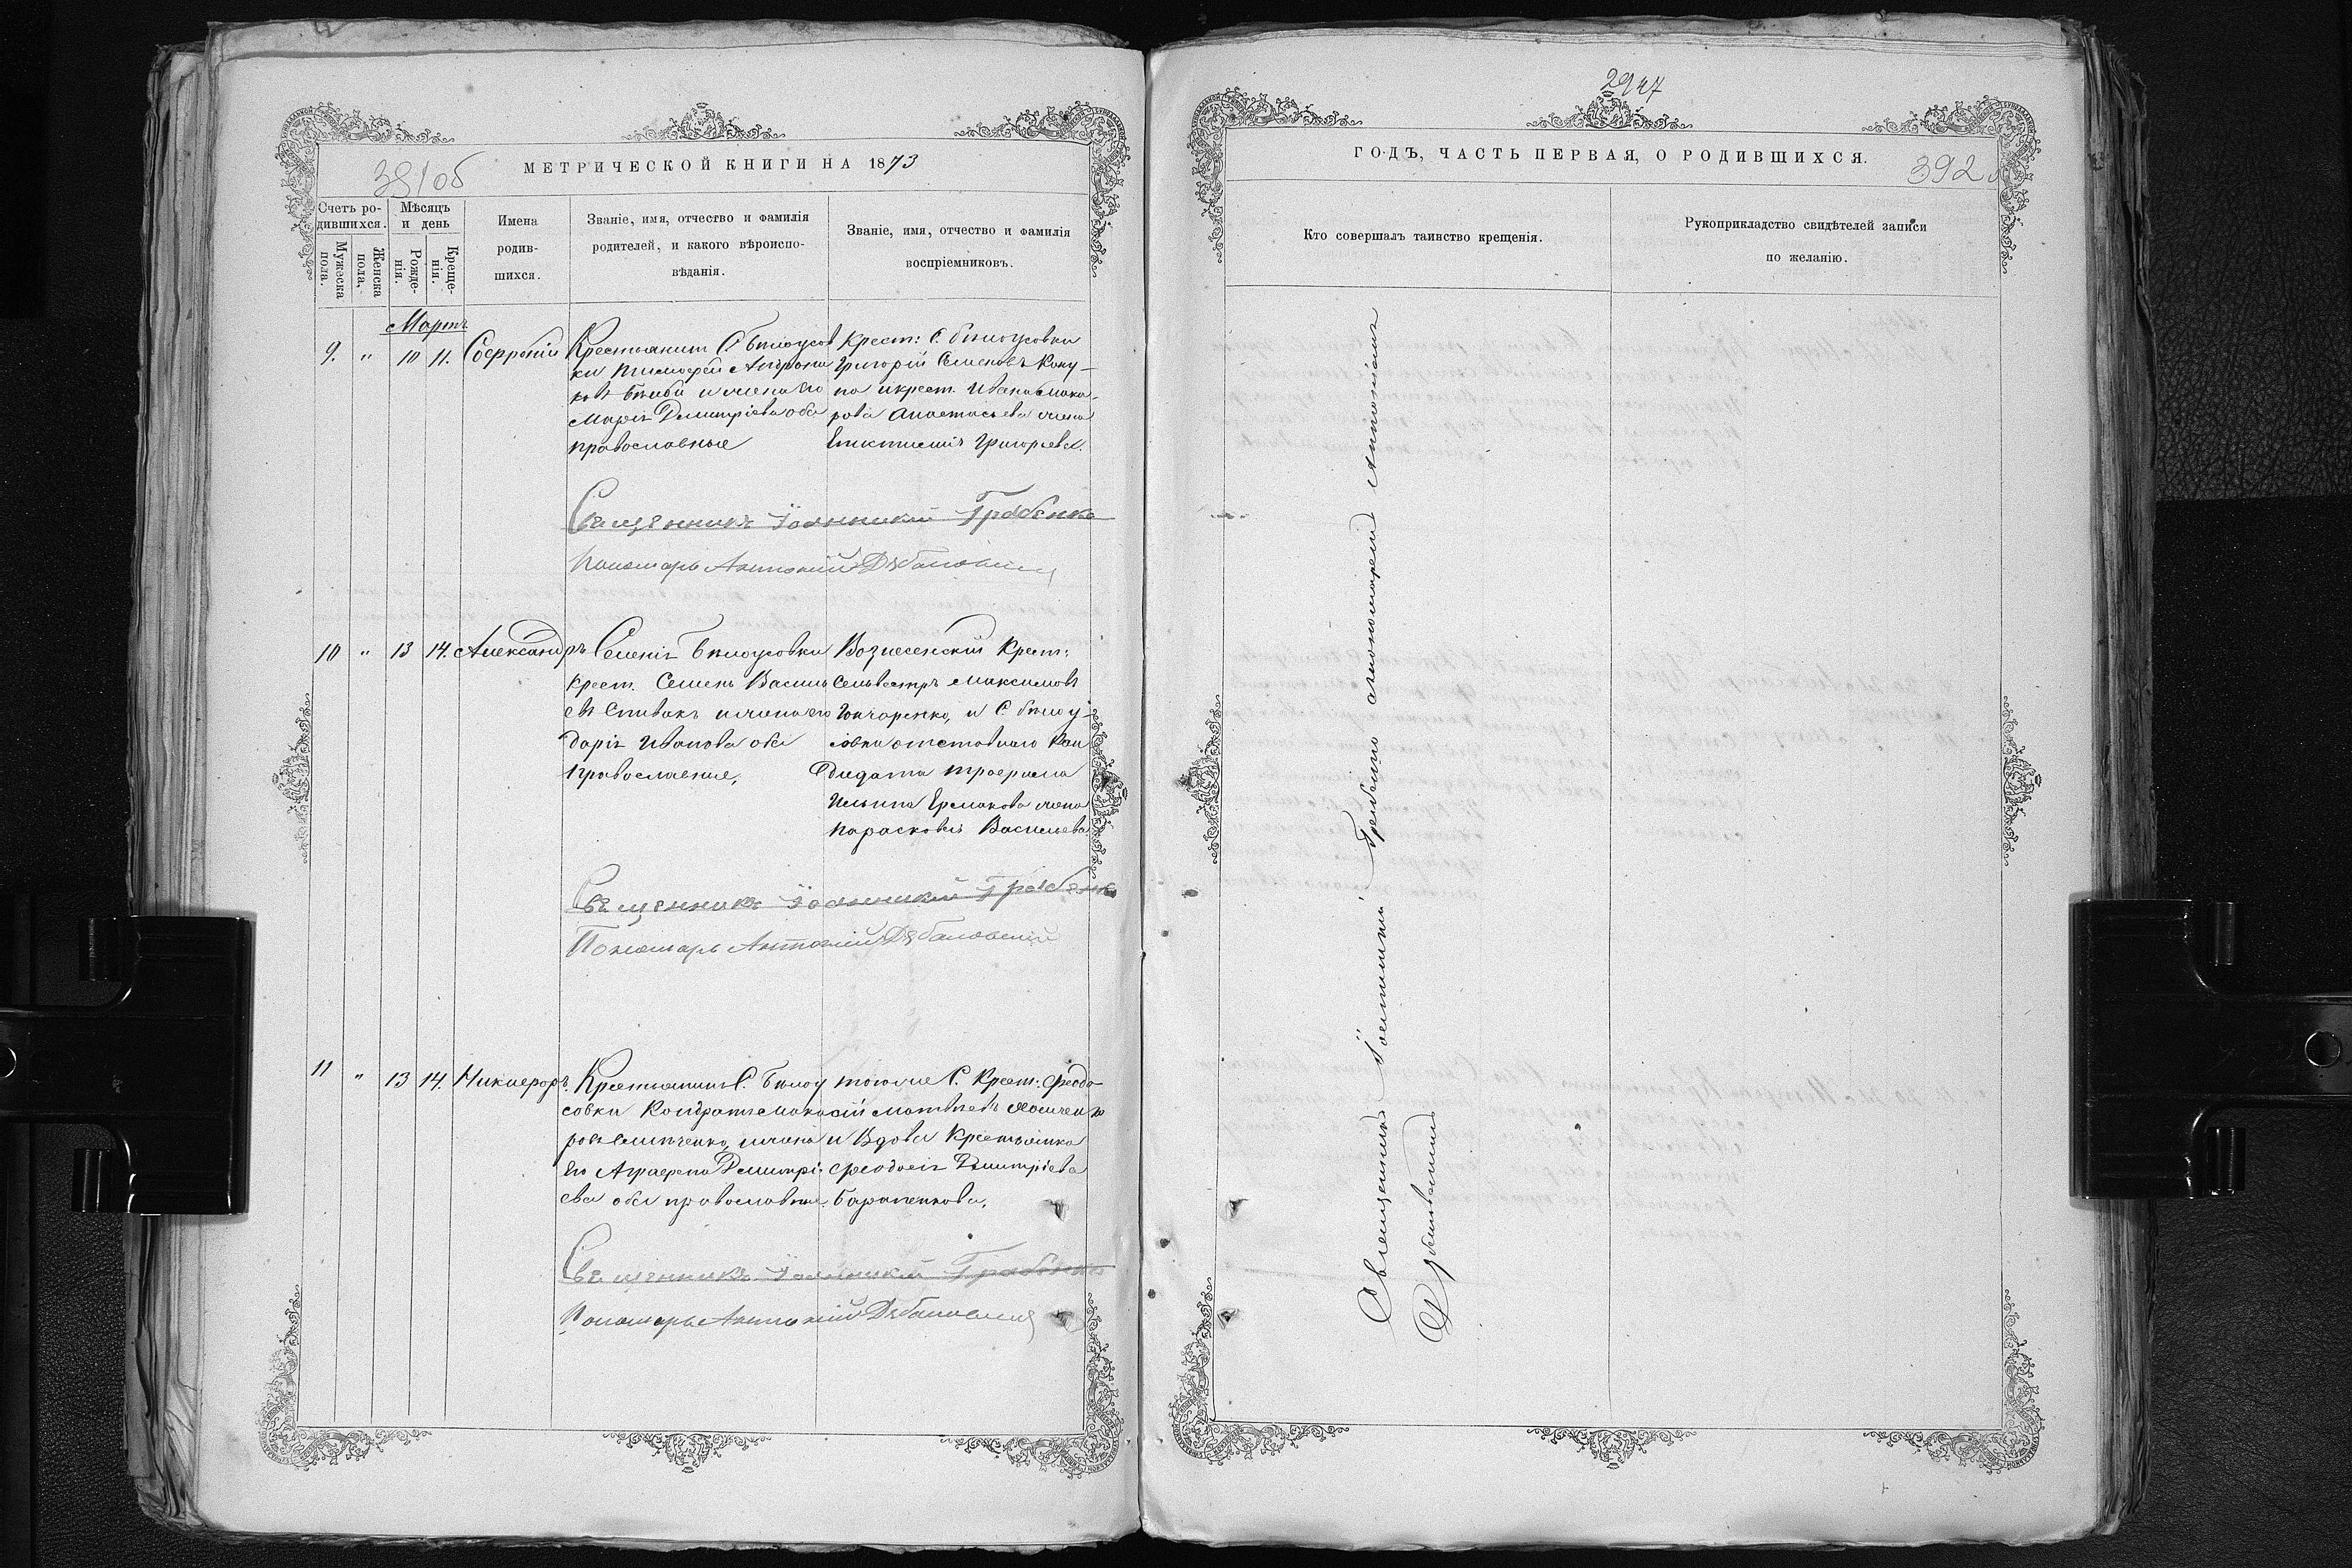 МЕТРИЧЕСКОЙ КНИГИ НА 1873
Счетъ родившихся.
Мѣсяцъ и день
Мужеска пола.
Женска пола,
Рожденія.
Крещенія.
Имена
родив-
шихся.
Званіе, имя, отчество и фамилія
родителей, и какого вѣроиспо-
вѣданія.
Званіе, имя, отчество и фамилія
воспріемниковъ.
Мартъ
9. " 10 11. Софроній
Крестьянинъ С. Бѣлоусов
ки Тимофей
и жена его
Марія Димитріева оба
православные
Крест: С. Бѣлоусовки
Григорій Семеновъ
и крест. Ивана Мака-
рова жена
Григорьева.
Священникъ Іоанникій Гребенко
Пономарь Антоній
10 " 13 14. Александръ
Селенія Бѣлоусовки
крест. Семенъ Василь
евъ Спивакъ и жена его
Дарія Иванова оба
православные,
Вознесенскій Крест:
Сельвестръ Максимовъ
Гончаренко, и С. Бѣлоу-
совки отставнаго Кан
дидата Трофима
Ильина Ермакова жена
Параскева Васильева.
Священникъ Іоанникій Гребенко
Пономарь Антоній
11 " 13 14. Никифоръ.
Крестьянинъ С. Бѣлоу
совки Кондратъ Мака
ровъ и жена
его Аграфена Димитрі-
ева оба православные.
тогоже С. Крест: Феодо
сій Матвѣевъ
и Вдова Крестьянка
Феодосія Димитріева
Баранникова.
Священникъ Іоанникій Гребенко
Пономарь Антоній
2947
ГОДЪ, ЧАСТЬ ПЕРВАЯ, О РОДИВШИХСЯ.
392
Кто совершалъ таинство крещенія.
Рукоприкладство свидѣтелей записи
по желанію.
Священникъ Іоанникій Гребенко съ пономаремъ Антоніемъ